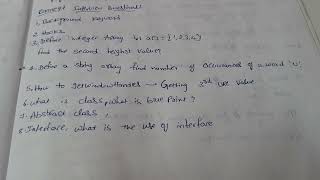 Interview Questions
1. Background keyword
2. Hooks
3. Define integer array int arr = {1,2,3,4}
find the second highest value
4. Define a string array find number of occurances of a word 'u'.
5. How to Getwindowhandles → Getting 3rd value
6. what is class, what is Point?
7. Abstract class,
8. Interface, what is the use of interface